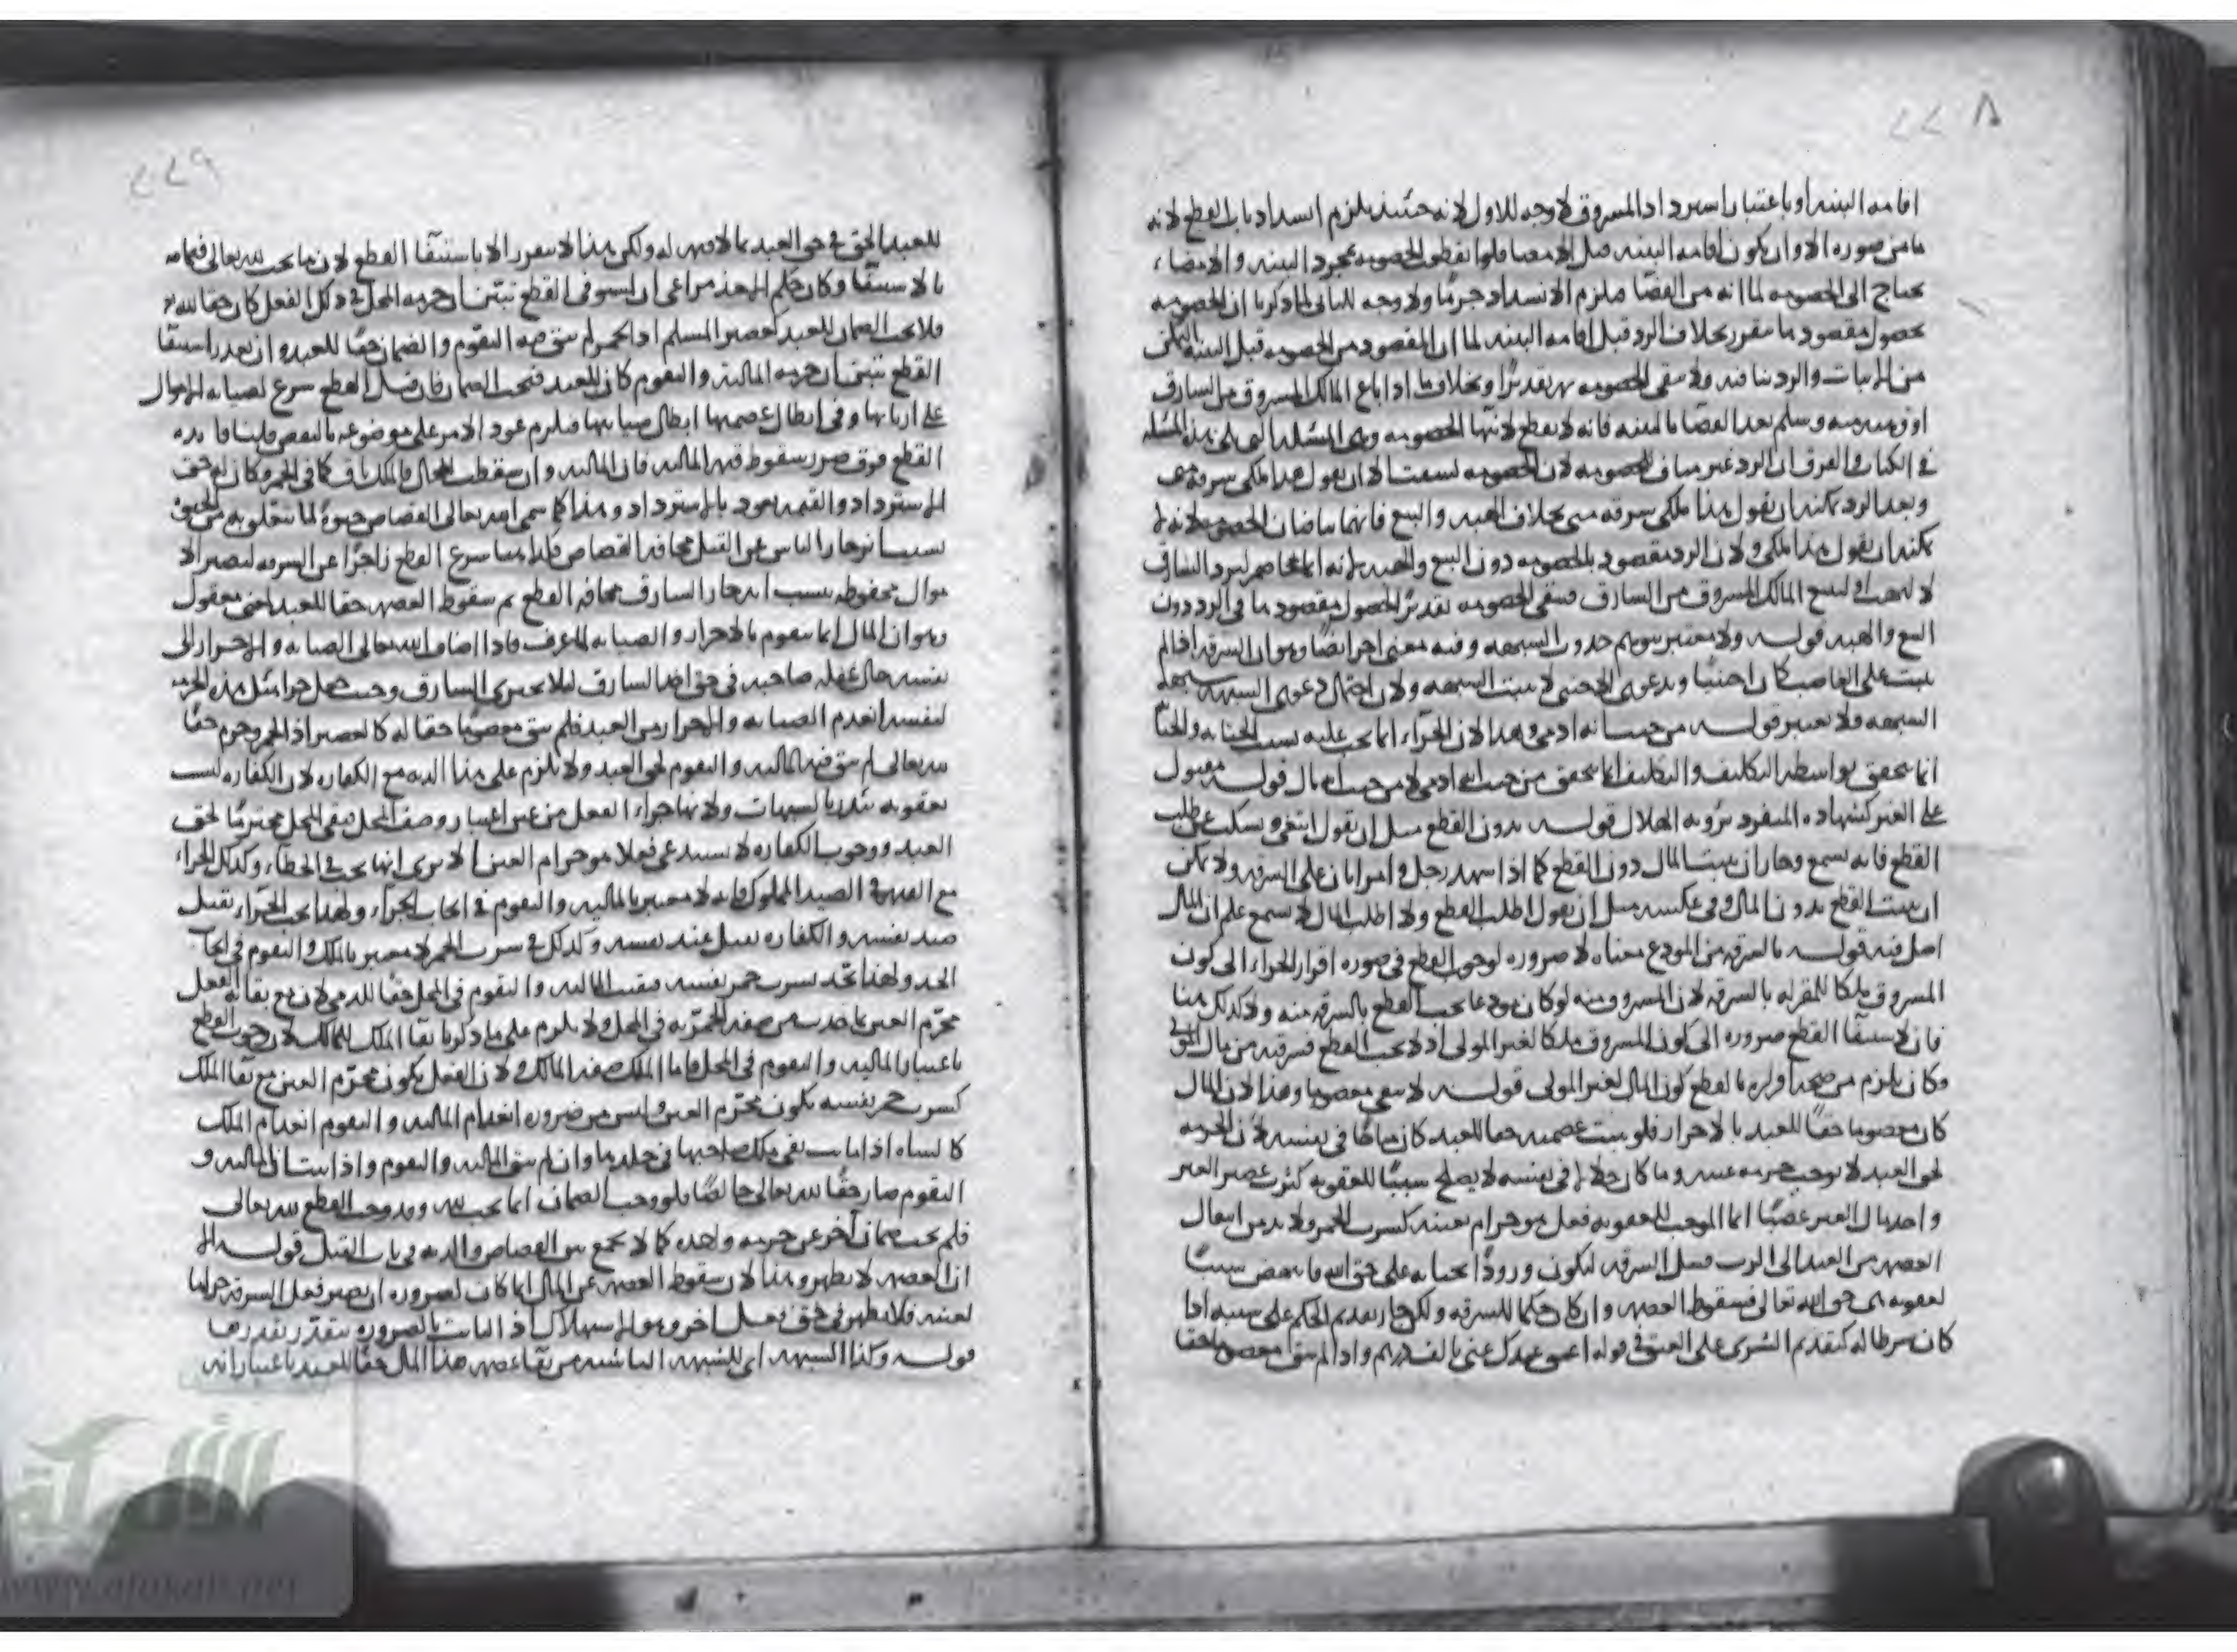 ٢٢٨
اقامه البينه او باعتبار استرداد المسروق لا وجه للاول لانه حينئذ يلزم انسداد باب القطع لانه
ما من صوره الا وان يكون اقامه البينه قبل الامضا فلو انقطع الخصومه بمجرد البينه والامضاء
يحتاج الى الخصومه لما انه من القضا فيلزم الانسداد جزما ولا وجه للثاني لما ذكرنا ان الخصومه
بحصول مقصودها تتقرر بخلاف الرد قبل اقامه البينه لما ان المقصود من الخصومه قبل البينه التمكن
من الاثبات والرد ينافيه ولا تبقى الخصومه تقديرا وبخلاف ما اذا باع المالك المسروق من السارق
او وهبه منه وسلم بعد القضا بالبينه فانه لا يقطع لانتها الخصومه وهي المسئله التي تلي هذه المسئله
في الكتاب والفرق ان الرد غير مناف للخصومه لان الخصومه ليست الا ان يقول هذا ملكي سرقه مني
وبعد الرد يمكنه ان يقول هذا ملكي سرقه مني بخلاف الهبه والبيع فانهما يناقضان الخصومه لانه لا
يمكنه ان يقول هذا ملكي ولان الرد مقصود بالخصومه دون البيع والهبه لانه انما يخاصم ليرد السارق
لا ليهب او ليبيع المالك المسروق من السارق فتبقى الخصومه تقديرا لحصول مقصودها في الرد دون
البيع والهبه قوله ولا معتبر بتوهم حدوث الشبهه وفيه معنى اخر ايضا وهو ان السرقه اذا لم
تثبت على الغائب كان اجنبيا وبدعوى الاجنبي لا تثبت الشبهه ولان احتمال دعوى الشبهه شبهة
الشبهه فلا تعتبر قوله من حيث انه ادمي وهذا لان الجزاء انما يجب عليه بسبب الجنايه والجنا
انما تتحقق بواسطه التكليف والتكليف انما يتحقق من حيث انه ادمي لا من حيث انه مال قوله مقبول
على الغير كشهاده المنفرد برؤيه الهلال قوله بدون القطع مثل ان يقول ابتغي ويسكت عن طلب
القطع فانه يسمع وجاز ان يثبت المال دون القطع كما اذا شهد رجل وامراتان على السرقه ولا يمكن
ان يثبت القطع بدون المال وفي عكسه مثل ان يقول اطلب القطع ولا اطلب المال لا يسمع علم ان المال
اصل فيه قوله بالسرقه من المودع معناه لا ضروره لوجوب القطع في صوره اقرار الحر الى كون
المسروق ملكا للمقر له بالسرقه لان المسروق منه لو كان مودعا يجب القطع بالسرقه منه ولا كذلك هنا
فان لاستيفا القطع ضروره الى كون المسروق ملكا لغير المولى اذ لا يجب القطع بسرقته من مال المولى
وكان يلزم من صحه اقراره بالقطع كون المال لغير المولى قوله لا يبقى معصوما وهذا لان المال
كان معصوما حقا للعبد بالاحراز فلو بقيت عصمته حقا للعبد كان مباحا في نفسه لان الحرمه
لحق العبد لا توجب حرمه عينه وما كان حلالا في نفسه لا يصلح سببا للعقوبه كشرب عصير الغير
واخذ مال الغير غصبا انما الموجب للعقوبه فعل هو حرام بعينه كشرب الخمر ولا بد من انتقال
العصمه من العبد الى الرب قبل السرقه ليكون ورودا بجنايه على حق الله فانتهض سببا
لعقوبه هي حق الله تعالى فسقوط العصمه وان كان حكما للسرقه ولكن جاز تقديم الحكم على سببه اذا
كان شرطا له كتقديم الشرى على العتق في قوله اعتق عبدك عني بالف درهم واذا لم يبق معصوما حقا
٢٢٩
للعبد الحق في حق العبد بما لا قيمه له ولكن هذا لا يتقرر الا باستيفا القطع لان ما يجب لله تعالى فتمامه
بالاستيفا وكان حكم الاخذ مراعى ان استوفى القطع تبين ان حرمه المحل في ذلك الفعل كان حقا لله تعالى
فلا يجب الضمان للعبد كعصير المسلم اذا تخمر لم يبق فيه التقوم والضمان حقا للعبد وان تعذر استيفا
القطع تبين ان حرمه الماليه والتقوم كان للعبد فيجب الضمان فان قيل القطع شرع لصيانه الاموال
على اربابها وفي ابطال عصمتها ابطال صيانتها فيلزم عود الامر على موضوعه بالنقض قلنا فائده
القطع فوق ضرر سقوط قيمه الماليه فان الماليه وان سقطت للحال فالملك باق كما في الخمر وكان له حق
الاسترداد والقيمه تعود بالاسترداد وهذا كما سمى الله تعالى القصاص حيوة لما يتعلق به من الحيوة
بسبب انزجار الناس عن القتل مخافه القصاص فكذا هنا شرع القطع زاجرا عن السرقه لتصير الا
موال محفوظه بسبب انزجار السارق مخافه القطع ثم سقوط العصمه حقا للعبد لمعنى معقول
وهو ان المال انما يتقوم بالاحراز والصيانه لما عرف فاذا اضاف الله تعالى الصيانه والاحراز الى
نفسه حال غفله صاحبه في حق اخذ السارق لئلا يجترى السارق وحيث جعل جزا مثل هذه الحرمه
لنفسه انعدم الصيانه والاحراز من العبد فلم يبق معصوما حقا له كالعصير اذا تخمر وحرم حقا
لله تعالى لم يبق فيه الماليه والتقوم لحق العبد ولا يلزم على هذا الديه مع الكفاره لان الكفاره ليست
بعقوبه تندرى بالشبهات ولانها جزاء الفعل من غير اعتبار وصف المحل فبقي المحل محترما لحق
العبد ووجوب الكفاره لا يستدعي فعلا هو حرام العين الا يرى انها تجب في الخطاء وكذلك الجزاء
مع القيمه في الصيد المملوك فانه لا معتبر بالماليه والتقوم في ايجاب الجزاء ولهذا يجب الجزاء بقتل
صيد نفسه والكفاره بقتل عبد نفسه وكذلك في شرب الخمر لا معتبر بالملك والتقوم في ايجاب
الحد ولهذا يحد بشرب خمر نفسه فبقيت الماليه والتقوم في المحل حقا للذمي لان مع بقائه الفعل
محرم العين بما حدث من صفه الخمريه في المحل ولا يلزم على ما ذكرنا بقا الملك للمالك لان وجوب القطع
باعتبار الماليه والتقوم في المحل فاما الملك صفه المالك ولان الفعل يكون محرم العين مع بقا الملك
كشرب خمر نفسه يكون محرم العين وليس من ضروره انعدام الماليه والتقوم انعدام الملك
كالشاه اذا ماتت بقي ملك صاحبها في جلدها وان لم يبق الماليه والتقوم واذا ثبت ان الماليه و
التقوم صار حقا لله تعالى خالصا فلو وجب الضمان انما يجب لله وقد وجب القطع لله تعالى
فلم يجب ضمان اخر عن حرمه واحده كما لا يجمع بين القصاص والديه في باب القتل قوله الا
ان العصمه لا يظهر وهذا لان سقوط العصمه عن المال انما كان لضروره ان يصير فعل السرقه حراما
لعينه فلا يظهر في حق فعل اخر وهو الاستهلاك اذ الثابت بالضروره يتقدر بقدرها
قوله وكذا الشبهه اي الشبهه الناشيه من بقا عصمه هذا المال حقا للعبد باعتبار انه